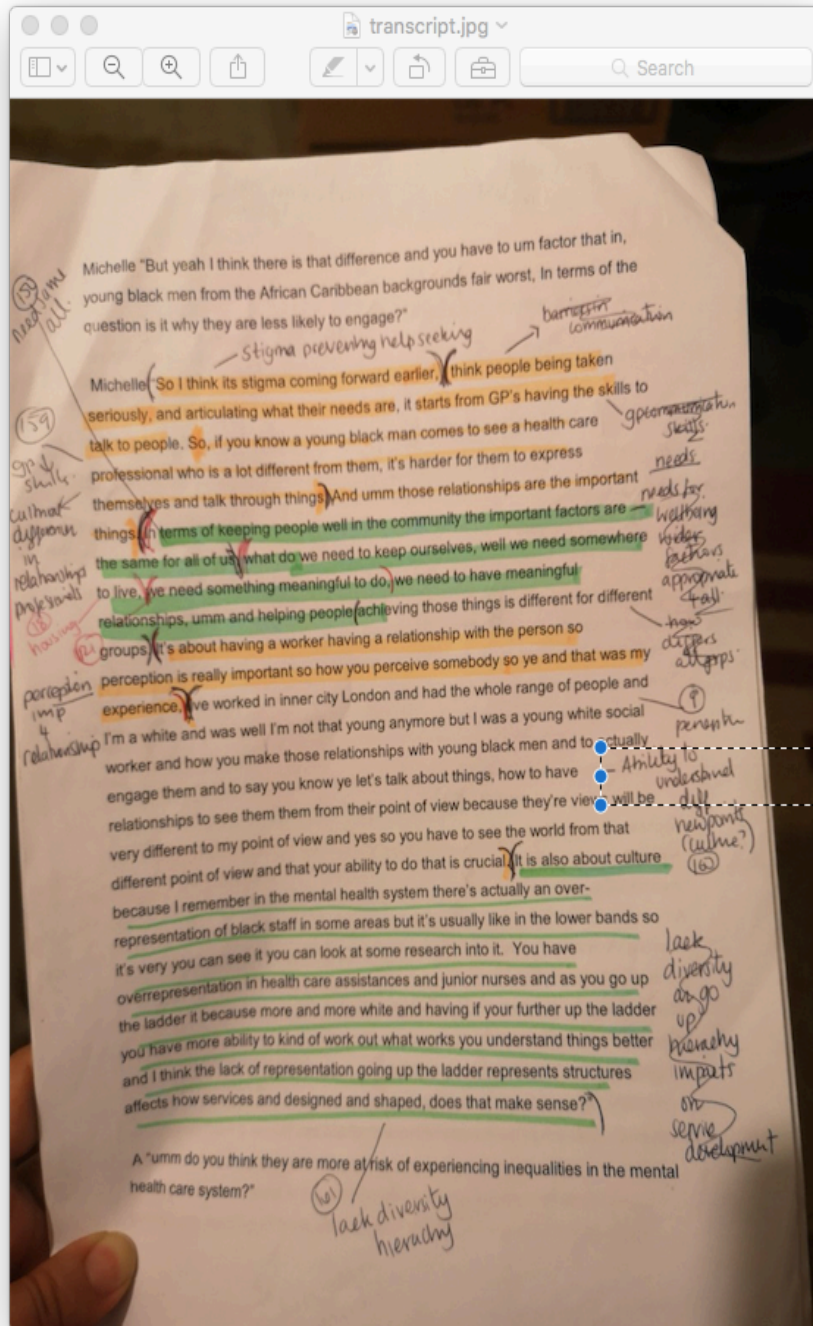 transcript.jpg
Search
Michelle "But yeah I think there is that difference and you have to um factor that in,
young black men from the African Caribbean backgrounds fair worst, In terms of the
question is it why they are less likely to engage?"
stigma preventing help seeking
barriers in
communication
Michelle "So I think its stigma coming forward earlier, I think people being taken
seriously, and articulating what their needs are, it starts from GP's having the skills to
talk to people. So, if you know a young black man comes to see a health care
professional who is a lot different from them, it's harder for them to express
themselves and talk through things. And umm those relationships are the important
things. In terms of keeping people well in the community the important factors are
the same for all of us, what do we need to keep ourselves, well we need somewhere
to live, we need something meaningful to do, we need to have meaningful
relationships, umm and helping people achieving those things is different for different
groups. It's about having a worker having a relationship with the person so
perception is really important so how you perceive somebody so ye and that was my
experience. I've worked in inner city London and had the whole range of people and
I'm a white and was well I'm not that young anymore but I was a young white social
worker and how you make those relationships with young black men and to actually
engage them and to say you know ye let's talk about things, how to have
relationships to see them from their point of view because they're view will be
very different to my point of view and yes so you have to see the world from that
different point of view and that your ability to do that is crucial. It is also about culture
because I remember in the mental health system there's actually an over-
representation of black staff in some areas but it's usually like in the lower bands so
it's very you can see it you can look at some research into it. You have
overrepresentation in health care assistances and junior nurses and as you go up
the ladder it because more and more white and having if your further up the ladder
you have more ability to kind of work out what works you understand things better
and I think the lack of representation going up the ladder represents structures
affects how services and designed and shaped, does that make sense?"
A "umm do you think they are more at risk of experiencing inequalities in the mental
health care system?"
159
cultural
in
relationships
professionals
housing
perception
imp
4
relationship
skills
needs
needs for
wellbeing
wider
factors
appropriate
4 all
how
differs
all grps
Ability to
understand
diff
viewpoints
(culture?)
lack
diversity
as go
up
hierarchy
impacts
on
service
development
lack diversity
hierachy